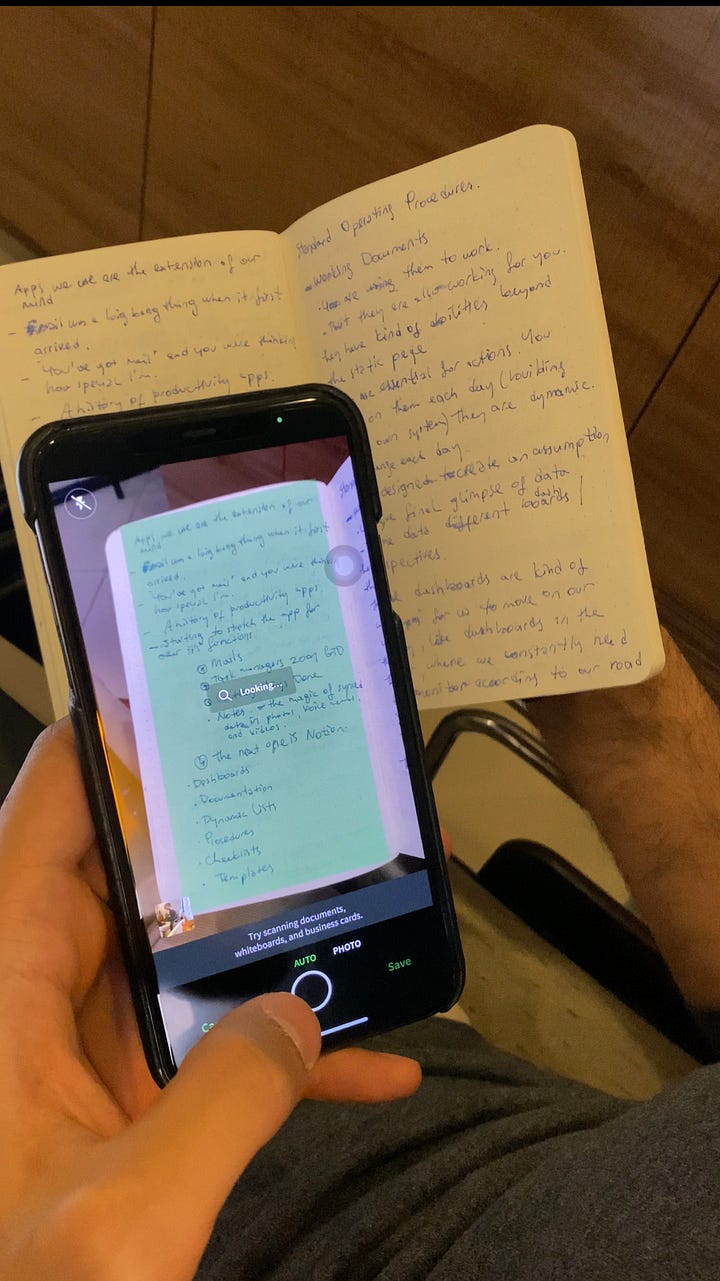 Apps we use are the extension of our
mind
- Email was a big bang thing when it first
arrived.
- "You've got mail" and you were thinking
how special I'm.
- A history of productivity apps.
Standard Operating Procedures.
Working Documents
them to work.
. That they are also working for you.
they have kind of abilities beyond
the static page
are essential for actions. You
on them each day (building
own system) They are dynamic.
each day.
create an assumption
final glimpse of data
data different boards /
dash
dashboards are kind of
for us to move on our
like dashboards in the
where we constantly need
monitor according to our road
Apps we use are the extension of our
mind
- Email was a big bang thing when it first
arrived.
- "You've got mail" and you were
how special I'm.
- A history of productivity apps.
Starting to stretch the app for
functions.
Mails
Task managers 2001 GTD
Looking...
Done
Notes the magic of
data in photos, voice
and videos.
④ The next one is Notion.
. Dashboards
. Documentation
. Dynamic Lists
. Procedures
. Checklists
. Templates
Try scanning documents,
whiteboards, and business cards.
AUTO PHOTO
Save
Ca